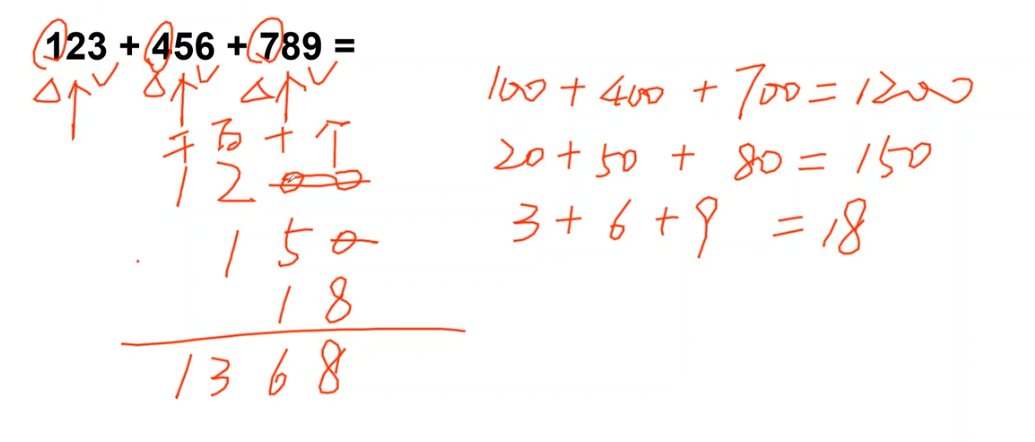 123 + 456 + 789 =
千百十个
1200
150
18
1368
100 + 400 + 700 = 1200
20 + 50 + 80 = 150
3 + 6 + 9 = 18